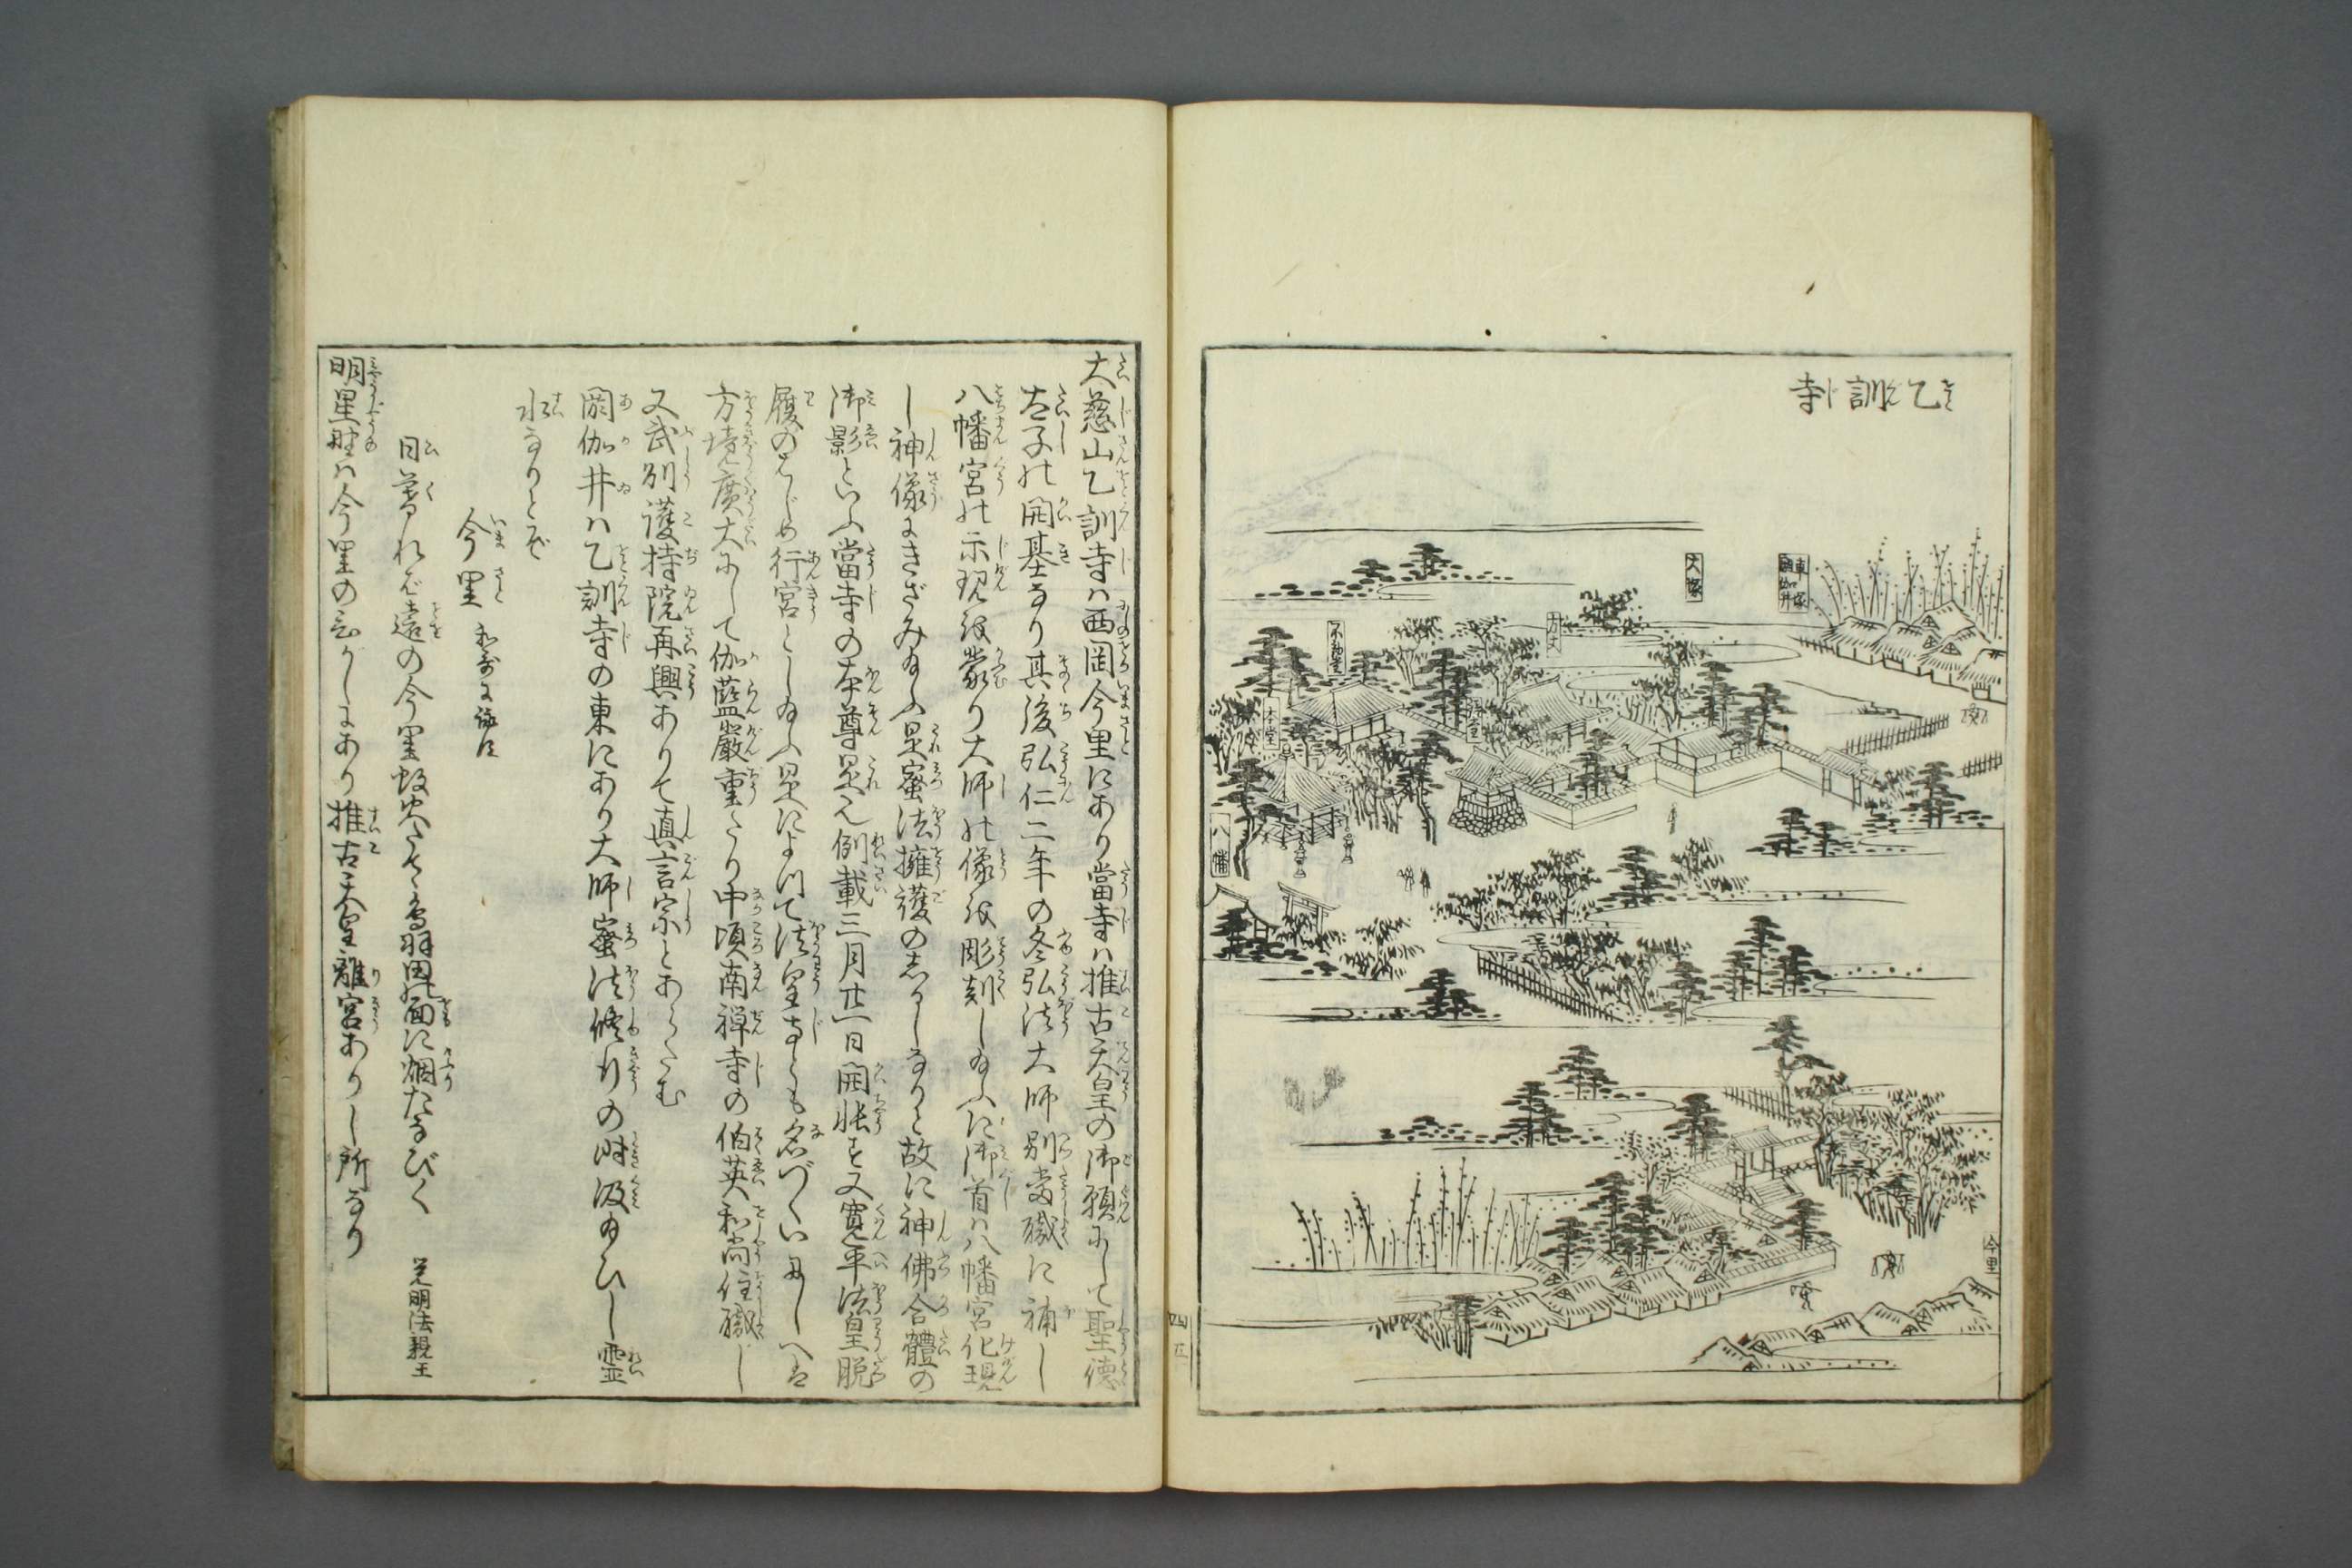 乙訓寺
車塚
閼伽井
大塚
方丈
不動堂
本堂
八幡
今里
大慈山乙訓寺は西岡今里にあり當寺は推古天皇の御願にして聖徳
太子の開基なり其後弘仁二年の冬弘法大師別當職に補し
八幡宮の示現を蒙り大師の像を彫刻し給ふに御首は八幡宮化現
し神像にきざみ給ふ是蜜法擁護の志るしなりと故に神佛合體の
御影といふ當寺の本尊是也例載三月廿一日開帳す又寛平法皇脱
履のはじめ行宮とし給ふ是によつて法皇寺とも名づくいにしへは
方境廣大にして伽藍嚴重たり中頃南禅寺の伯英和尚住職し
又武刕護持院再興ありて真言宗とあらたむ
閼伽井は乙訓寺の東にあり大師蜜法修行の時汲給ひし霊
水なりとぞ
今里 和哥に詠に
日暮れば遠の今里蚊火たて鳥羽田の面に烟たなびく 覚明法親王
明星野は今里のひがしにあり推古天皇離宮ありし所なり